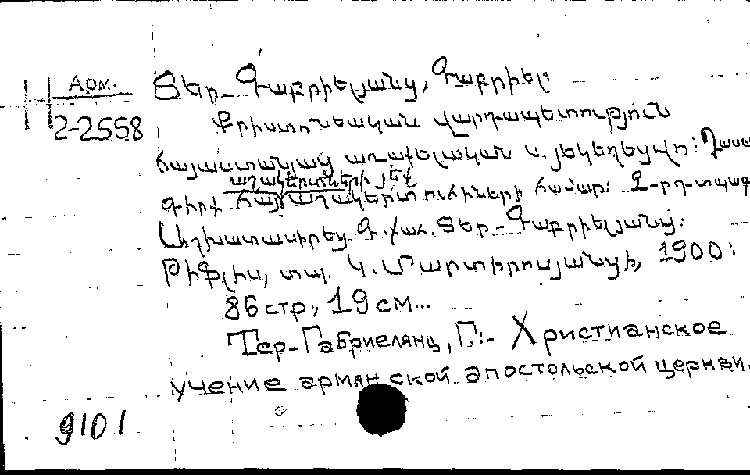 Арм.
2-2558
Տեր-Գաբրիելյանց, Գաբրիել
Քրիստոնեական վարդապետություն
հայաստանյայց առաքելական ս. յեկեղեցվո: Դասա
աշակերտների յեվ
գիրք հայ աշակերտուհիների համար: 2-րդ տպագ
Աշխատասիրեց Գ. քահ. Տեր-Գաբրիելյանց:
Թիֆլիս, տպ. Կ. Մարտիրոսյանցի, 1900:
86 стр, 19 см...
Тер-Габриелянц, Г.:- Христианское
учение армянской апостольской церкви.
9101